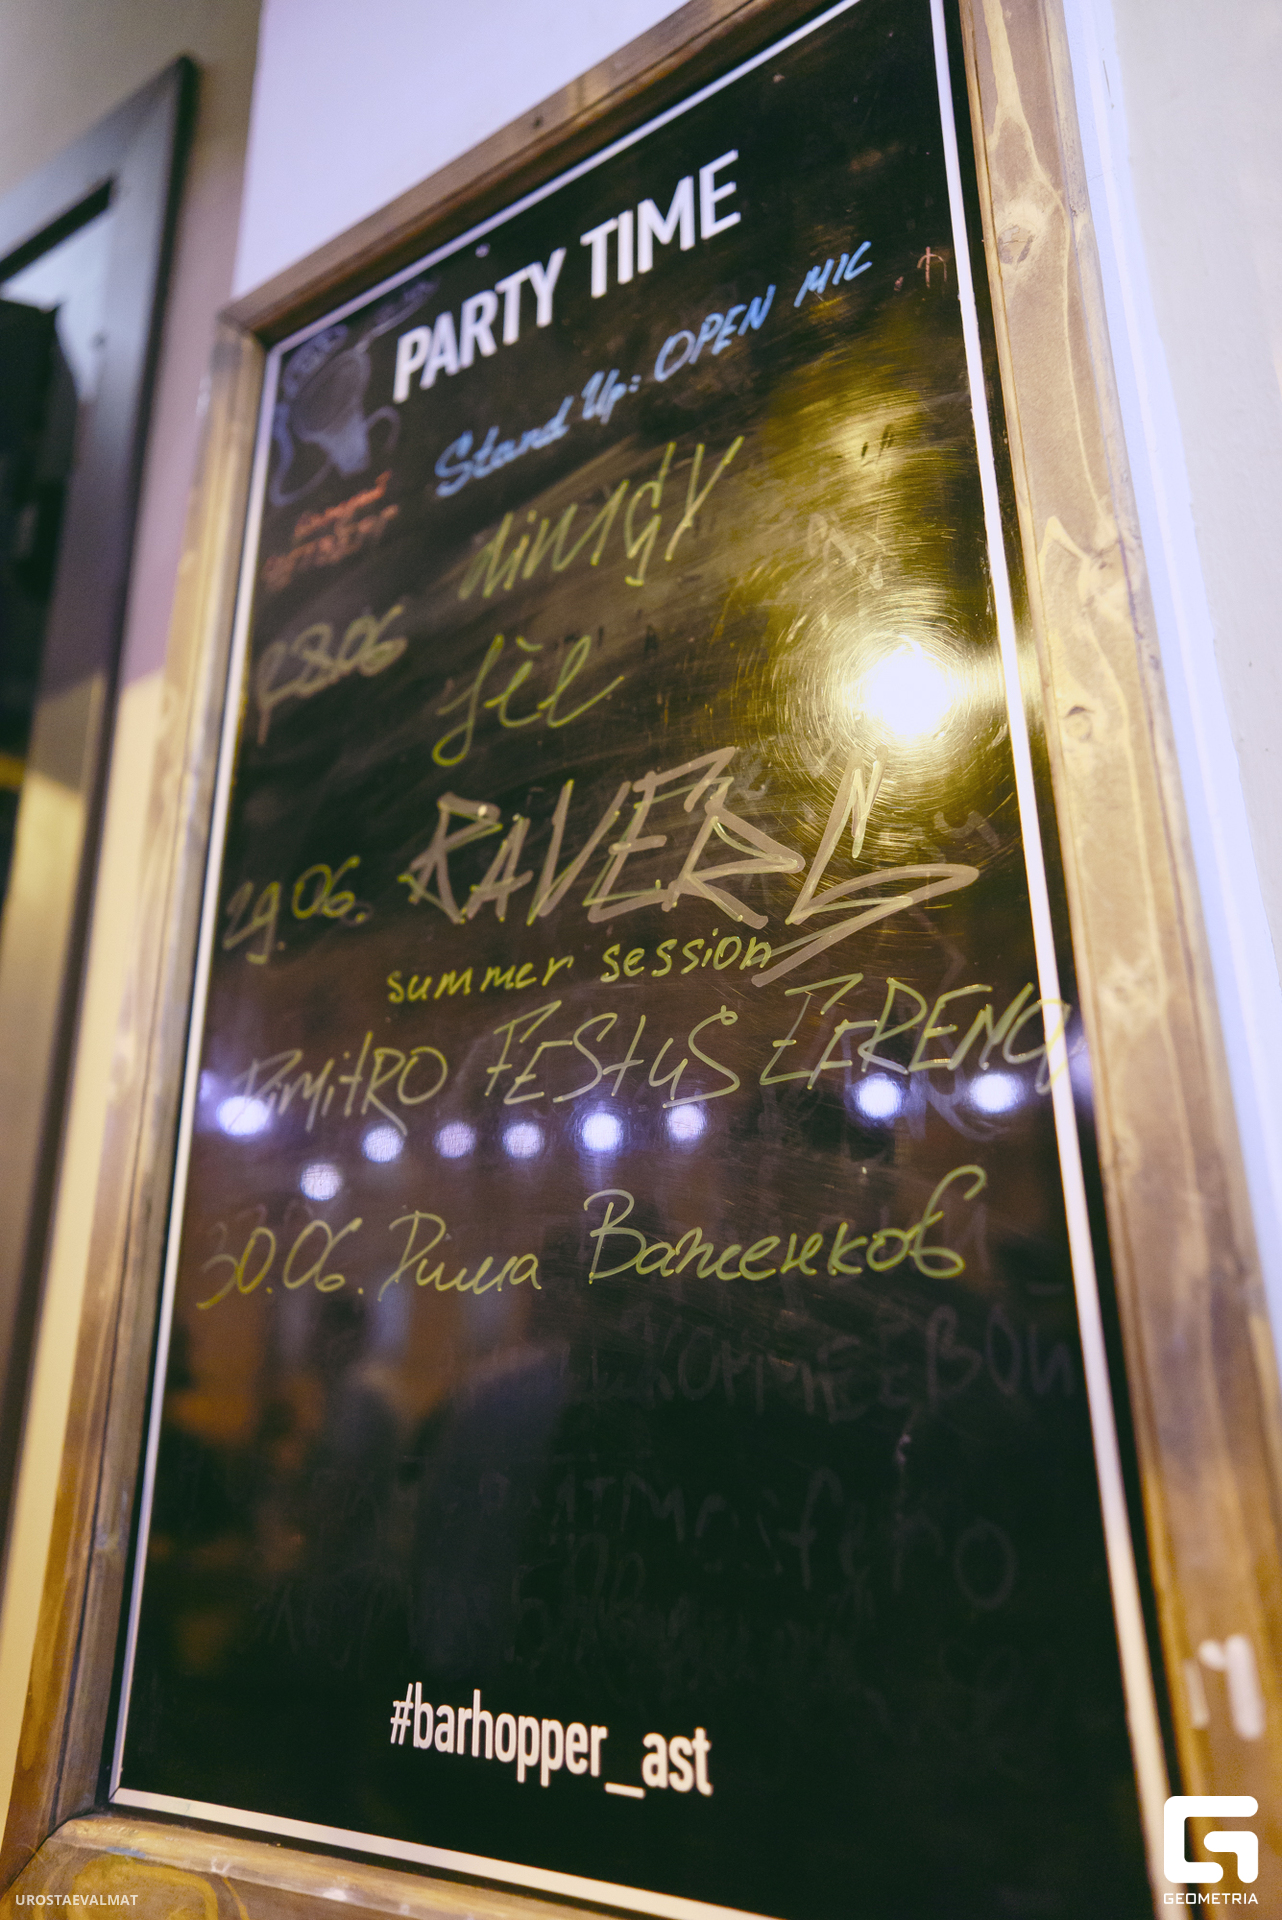 PARTY TIME
Stand Up: OPEN MIC
каждый
четверг
28.06
fèl
29.06. RAVERS
summer session
DimitRO FEStuS ZERENO
30.06. Дима Важенков
#barhopper_ast
UROSTAEVALMAT
GEOMETRIA